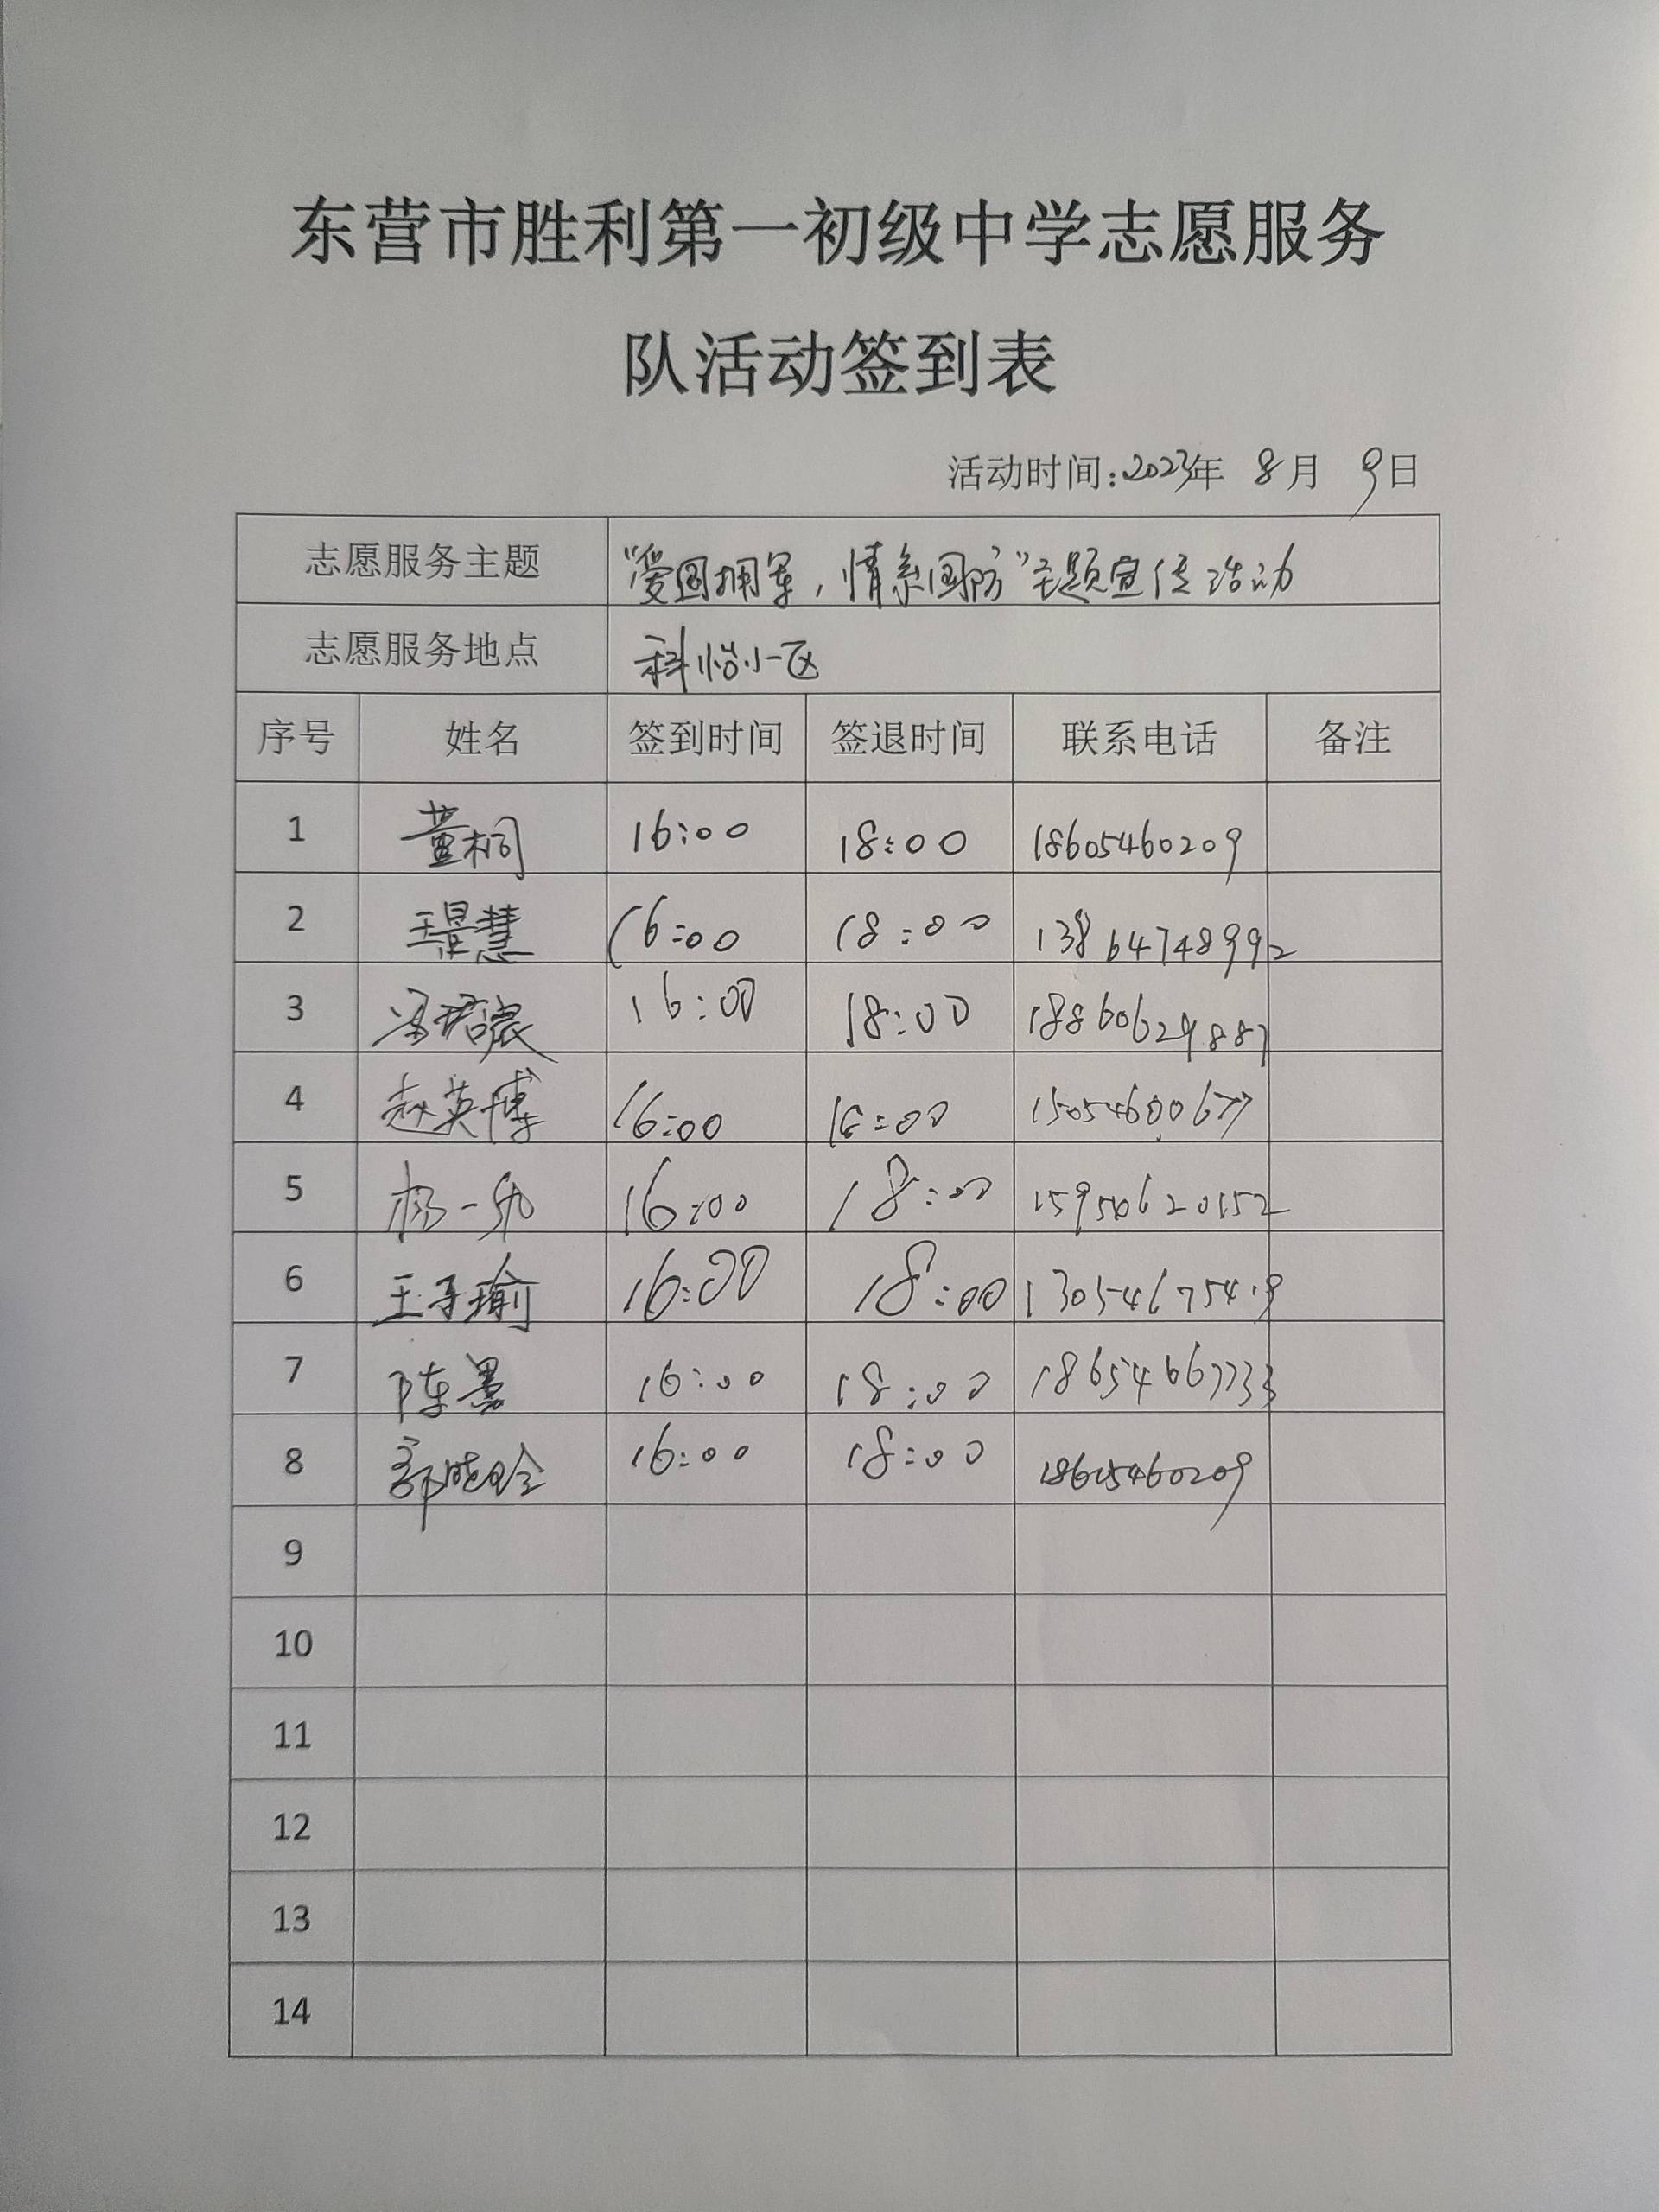 东营市胜利第一初级中学志愿服务
队活动签到表
活动时间:2023年 8月 9日
志愿服务主题 “爱国拥军，情系国防”主题宣传活动
志愿服务地点 科怡小区
序号 姓名 签到时间 签退时间 联系电话 备注
1 董桐 16:00 18:00 18605460209
2 王景慧 16:00 18:00 13864748992
3 16:00 18:00 18860629887
4 赵英博 16:00 15054600677
5 杨一帆 16:00 18:00 15950620152
6 王子瑜 16:00 18:00
7 陈 16:00 18:00 18654667733
8 郭晓晗 16:00 18:00 18605460209
9
10
11
12
13
14